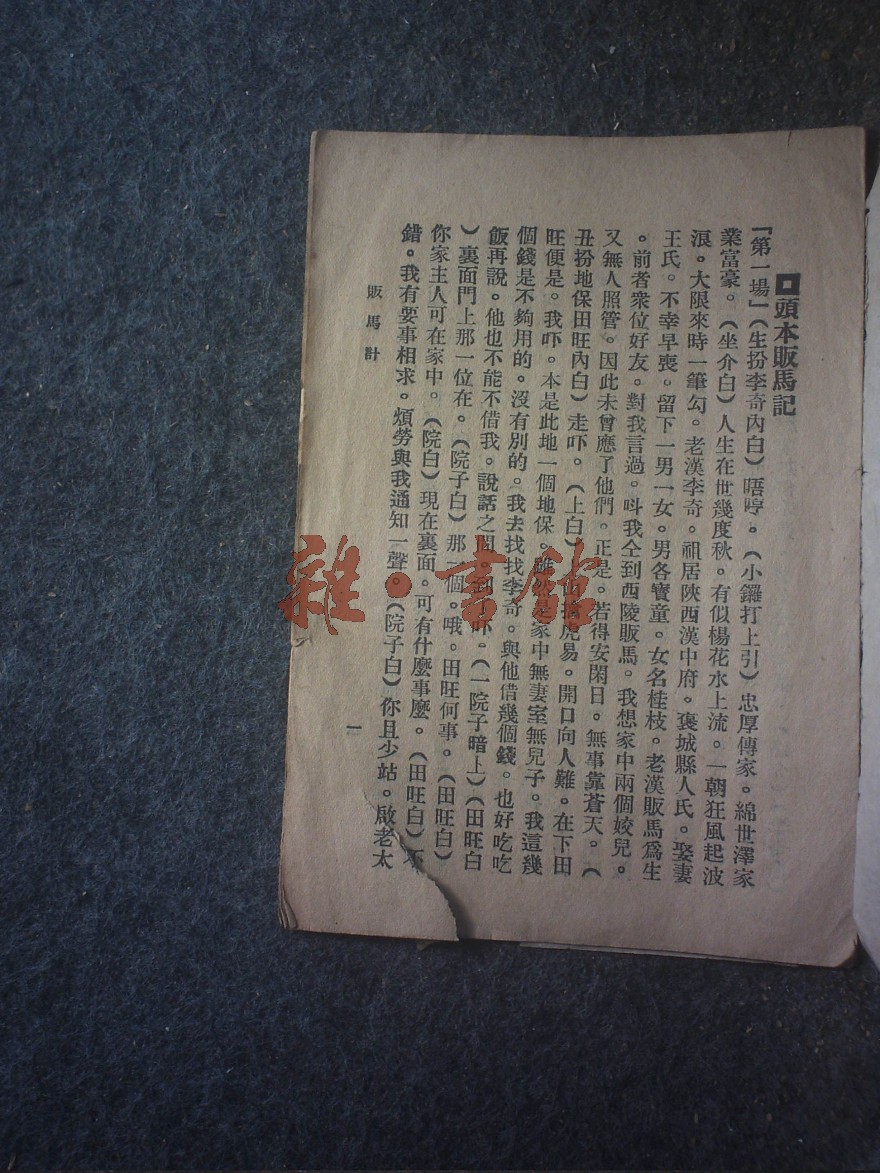 頭本販馬記
「第一場」（生扮李奇內白）唔哼。（小鑼打上引）忠厚傳家。綿世澤家
業富豪。（坐介白）人生在世幾度秋。有似楊花水上流。一朝狂風起波
浪。大限來時一筆勾。老漢李奇。祖居陝西漢中府。褒城縣人氏。娶妻
王氏。不幸早喪。留下一男一女。男名寳童。女名桂枝。老漢販馬爲生
。前者衆位好友。對我言過。呌我仝到西陵販馬。我想家中兩個姣兒。
又無人照管。因此未曾應了他們。正是。若得安閑日。無事靠蒼天。（
丑扮地保田旺內白）走吓。（上白）山擒虎易。開口向人難。在下田
旺便是。我吓。本是此地一個地保。雖然是家中無妻室無兒子。我這幾
個錢是不夠用的。沒有別的。我去找找李奇。與他借幾個錢。也好吃吃
飯再說。他也不能不借我。說話之間。到了吓。（一院子暗上）（田旺白
）裏面門上那一位在。（院子白）那一個。哦。田旺何事。（田旺白）
你家主人可在家中。（院白）現在裏面。可有什麼事麼。（田旺白）不
錯。我有要事相求。煩勞與我通知一聲。（院子白）你且少站。啟老太
販馬計
一
雜·書館